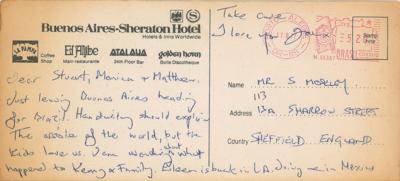 Buenos Aires-Sheraton Hotel
Hotels & Inns Worldwide
Coffee Shop
El Aljibe
Main-restaurante
ATALAYA
24th Floor Bar
golden horn
Boite Discotheque
Dear Stuart, Monica & Matthew.
Just leaving Buenos Aires heading
for Brazil. Handwriting should explain
The of the world, but the
kids love us. I am wondering what
happened to Kenny & Family. Eileen is back in L.A. doing in Mexico
Take care
I love you
Name :
MR S
113
Address :
13A SHARROW STREET
Country :
SHEFFIELD ENGLAND
BRASIL